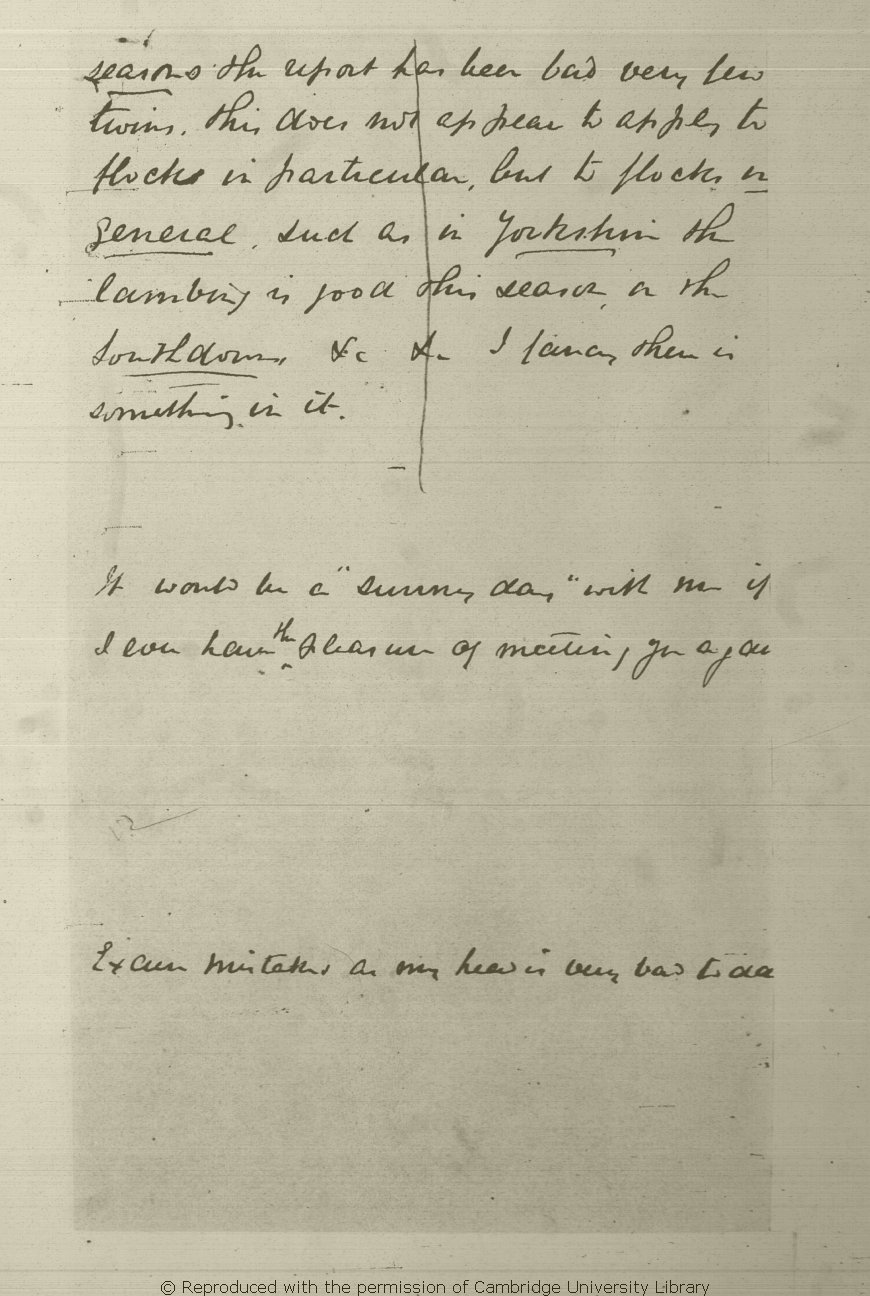 seasons the report has been bad very few
twins. this does not appear to apply to
flocks in particular, but to flocks in
general. such as in Yorkshire the
lambing is good this season, on the
Southdowns, &c &c I fancy there is
something in it.
It would be a "sunny day" with me if
I ever have the pleasure of meeting you again
Excuse mistakes as my head is very bad to da
© Reproduced with the permission of Cambridge University Library